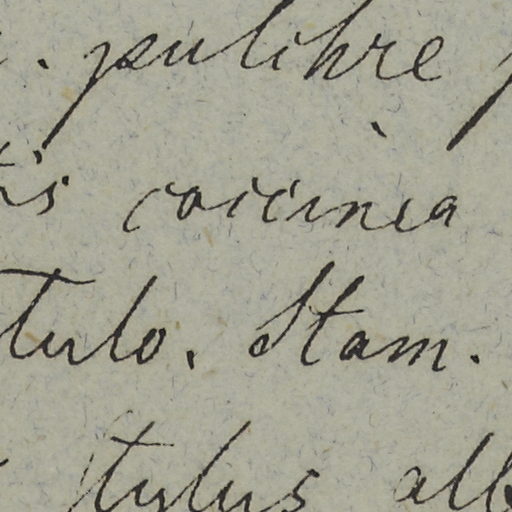 pulchre
coccinea
tulo. Stam.
stylus alb